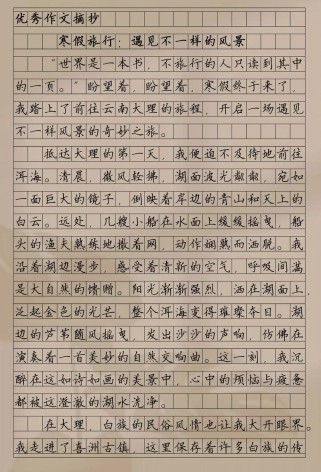 优秀作文摘抄
寒假旅行：遇见不一样的风景
“世界是一本书，不旅行的人只读到其中
的一页。”盼望着，盼望着，寒假终于来了，
我踏上了前往云南大理的旅程，开启一场遇见
不一样风景的奇妙之旅。
抵达大理的第一天，我便迫不及待地前往
洱海。清晨，微风轻拂，湖面波光粼粼，宛如
一面巨大的镜子，倒映着岸边的青山和天上的
白云。远处，几艘小船在水面上缓缓摇曳，船
头的渔夫熟练地撒着网，动作娴熟而洒脱。我
沿着湖边漫步，感受着清新的空气，呼吸间满
是大自然的馈赠。阳光渐渐强烈，洒在湖面上，
泛起金色的光芒，整个洱海变得璀璨夺目。湖
边的芦苇随风摇曳，发出沙沙的声响，仿佛在
演奏着一首美妙的自然交响曲。这一刻，我沉
醉在这如诗如画的美景中，心中的烦恼与疲惫
都被这澄澈的湖水洗净。
在大理，白族的民俗风情也让我大开眼界。
我走进了喜洲古镇，这里保存着许多白族的传